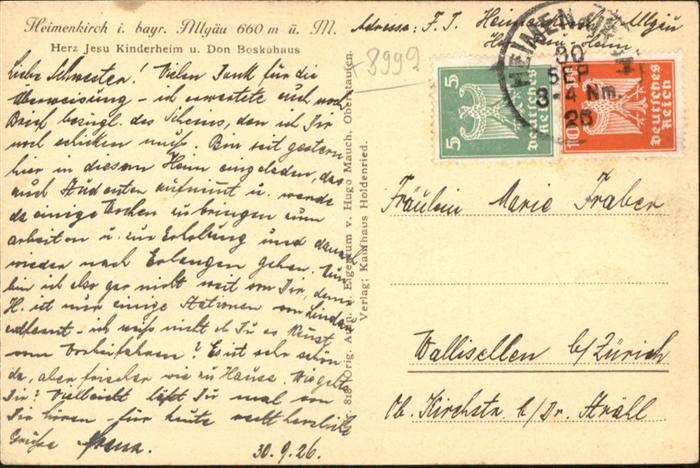 Heimenkirch i. bayr. Allgäu 660 m ü. M.
Herz Jesu Kinderheim u. Don Boskohaus
Liebe Schwester! Vielen Dank für die
Überweisung – ich erwartete auch noch
Brief bezügl. des Scheins, den ich Dir
noch schicken muss. Bin seit gestern
hier in diesem Heim eingeladen, das
auch Studenten aufnimmt u. werde
da einige Wochen zubringen zum
arbeiten u. zur Erholung und dann
wieder nach Erlangen gehen. Nun
bin ich also gar nicht weit von Dir, denn
H. ist nur einige Stationen von Lindau
entfernt – ich weiss nicht ob Du es kennst
vom Vorbeifahren? Es ist sehr schön
da, aber frischer wie zu Hause. Wie geht
Dir? Vielleicht lässt Du mal von
Dir hören – für heute recht herzliche
Grüsse
30.9.26.
Nr. 818 Orig. Aufn. u. Eigentum v. Hugo Mauch, Oberstaufen.
Verlag: Kaufhaus Holdenried.
+8999
Adresse: F. T. Heimenkirch Allgäu
Herz Jesu Heim
5
5
Deutsches Reich
10
Deutsches Reich
HEIMEN
30
SEP
3-4 Nm.
26
Fräulein Marie Traber
Wallisellen b/Zürich
Ob. Kirchstr b/Dr. Sträll